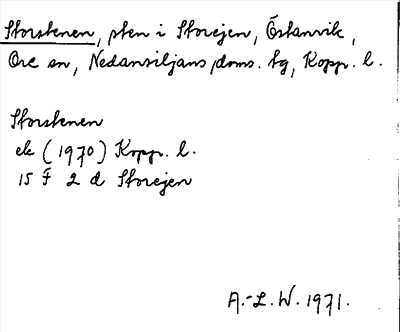 Storstenen, sten i Storejen, Östanvik,
Ore sn, Nedansiljans doms. tg, Kopp. l.
Storstenen
ek (1970) Kopp. l.
15 F 2 d Storejen
A.-L. W. 1971.